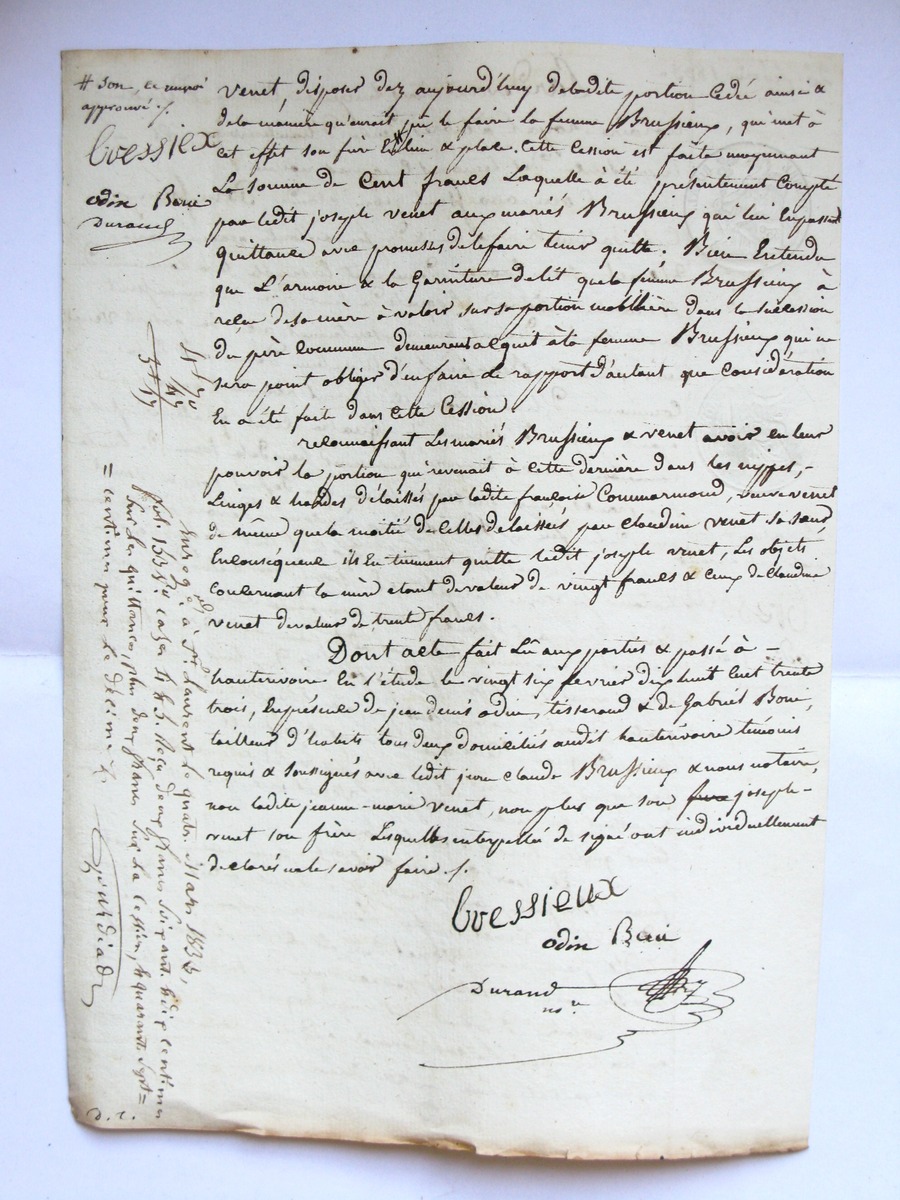 # Son, ce renvoi
approuvé /.
bressieux
odin Boni
Durand
venet disposer dez aujourd'huy deladite portion cedée ainsi &
dela maniere qu'aurait pu le faire la femme Brussieux, qui met à
cet effet son frère En # lieu & place. Cette Cession est faite moyennant
La somme de Cent francs Laquelle à été présentement Compté
par ledit joseph venet aux mariés Brussieux qui lui En passent
quittance avec promesses de le faire tenir quitte. Bien Entendu
que L'armoire & la Garniture delit que la femme Brussieux à
reçu desa mère à valoir sur sa portion mobiliaire dans la succession
du père Commun demeureront acquit à la femme Brussieux qui ne
sera point obliger d'en faire de rapport d'autant que Considération
En a été faite dans Cette Cession.
reconnaissant Les mariés Brussieux & venet avoir en leur
pouvoir la portion qui revenait à cette dernière dans les nippes, -
Linges & hardes délaissés par ladite françoise Commarmond, veuve venet
de même que la moitié de Celles delaissées par Claudine venet sa sœur
En Conséquence ils En tiennent quitte ledit joseph venet, Les objets
Concernant la mère etant devaleur de vingt francs & Ceux de Claudine
venet devaleur de trente francs.
Dont acte fait Lû aux parties & passé à -
hauterivoire En l'étude le vingt six fevrier dix huit Cent trente
trois, En présence de jean denis odin, tisserand & de Gabriel Boni,
tailleur d'habits tous deux domiciliés audit hauterivoire témoins
requis & soussignés avec ledit jean Claude Brussieux & nous notaire,
non ladite jeanne-marie venet, non plus que son joseph -
venet son frère Lesquelles interpellés de signé ont individuellement
declarés ne le savoir faire /.
bressieux
odin Boni
Durand
nre
Enregé à St. Laurent le quatre Mars 1833,
fol. 133 Vo. cases 4 & 5. Reçu deux francs soixant. & dix centimes
sur les quittances, plus deux francs sur la cession, & quarante sept =
= centimes pour le décime /.
D. c.